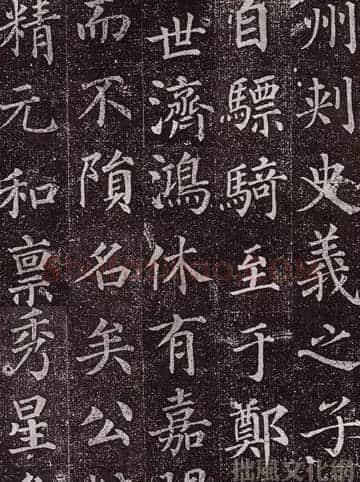 州刺史義之子
自驃騎至于鄭
世濟鴻休有嘉
而不隕名矣公
精元和禀秀星
拙風文化網